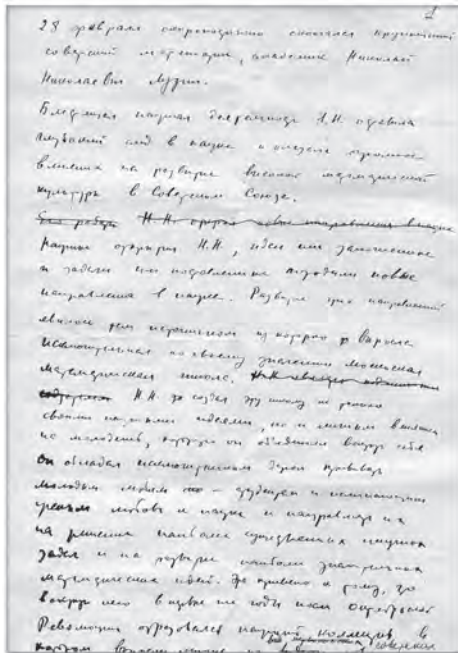 1
28 февраля скоропостижно скончался крупнейший
советский математик, академик Николай
Николаевич Лузин.
Блестящая научная деятельность Н.Н. оставила
глубокий след в науке и оказала огромное
влияние на развитие высокой математической
культуры в Советском Союзе.
Н.Н. открыл новые направления в науке
Научные открытия Н.Н., идеи им заложенные
и задачи им поставленные породили новые
направления в науке. Развитие этих направлений
явилось тем источником из которого выросла
исключительная по своему значению московская
математическая школа. Н.Н.
Н.Н. создал эту школу не только
своими научными идеями, но и личным влиянием
на молодежь, которую он объединил вокруг себя
Он обладал исключительным даром прививать
молодым людям – студентам и начинающим
ученым любовь к науке и направлять их
на решение наиболее существенных научных
задач и на развитие наиболее значительных
математических идей. Это привело к тому, что
вокруг него в первые же годы после Октябрьской
Революции образовался научный коллектив в
котором советских